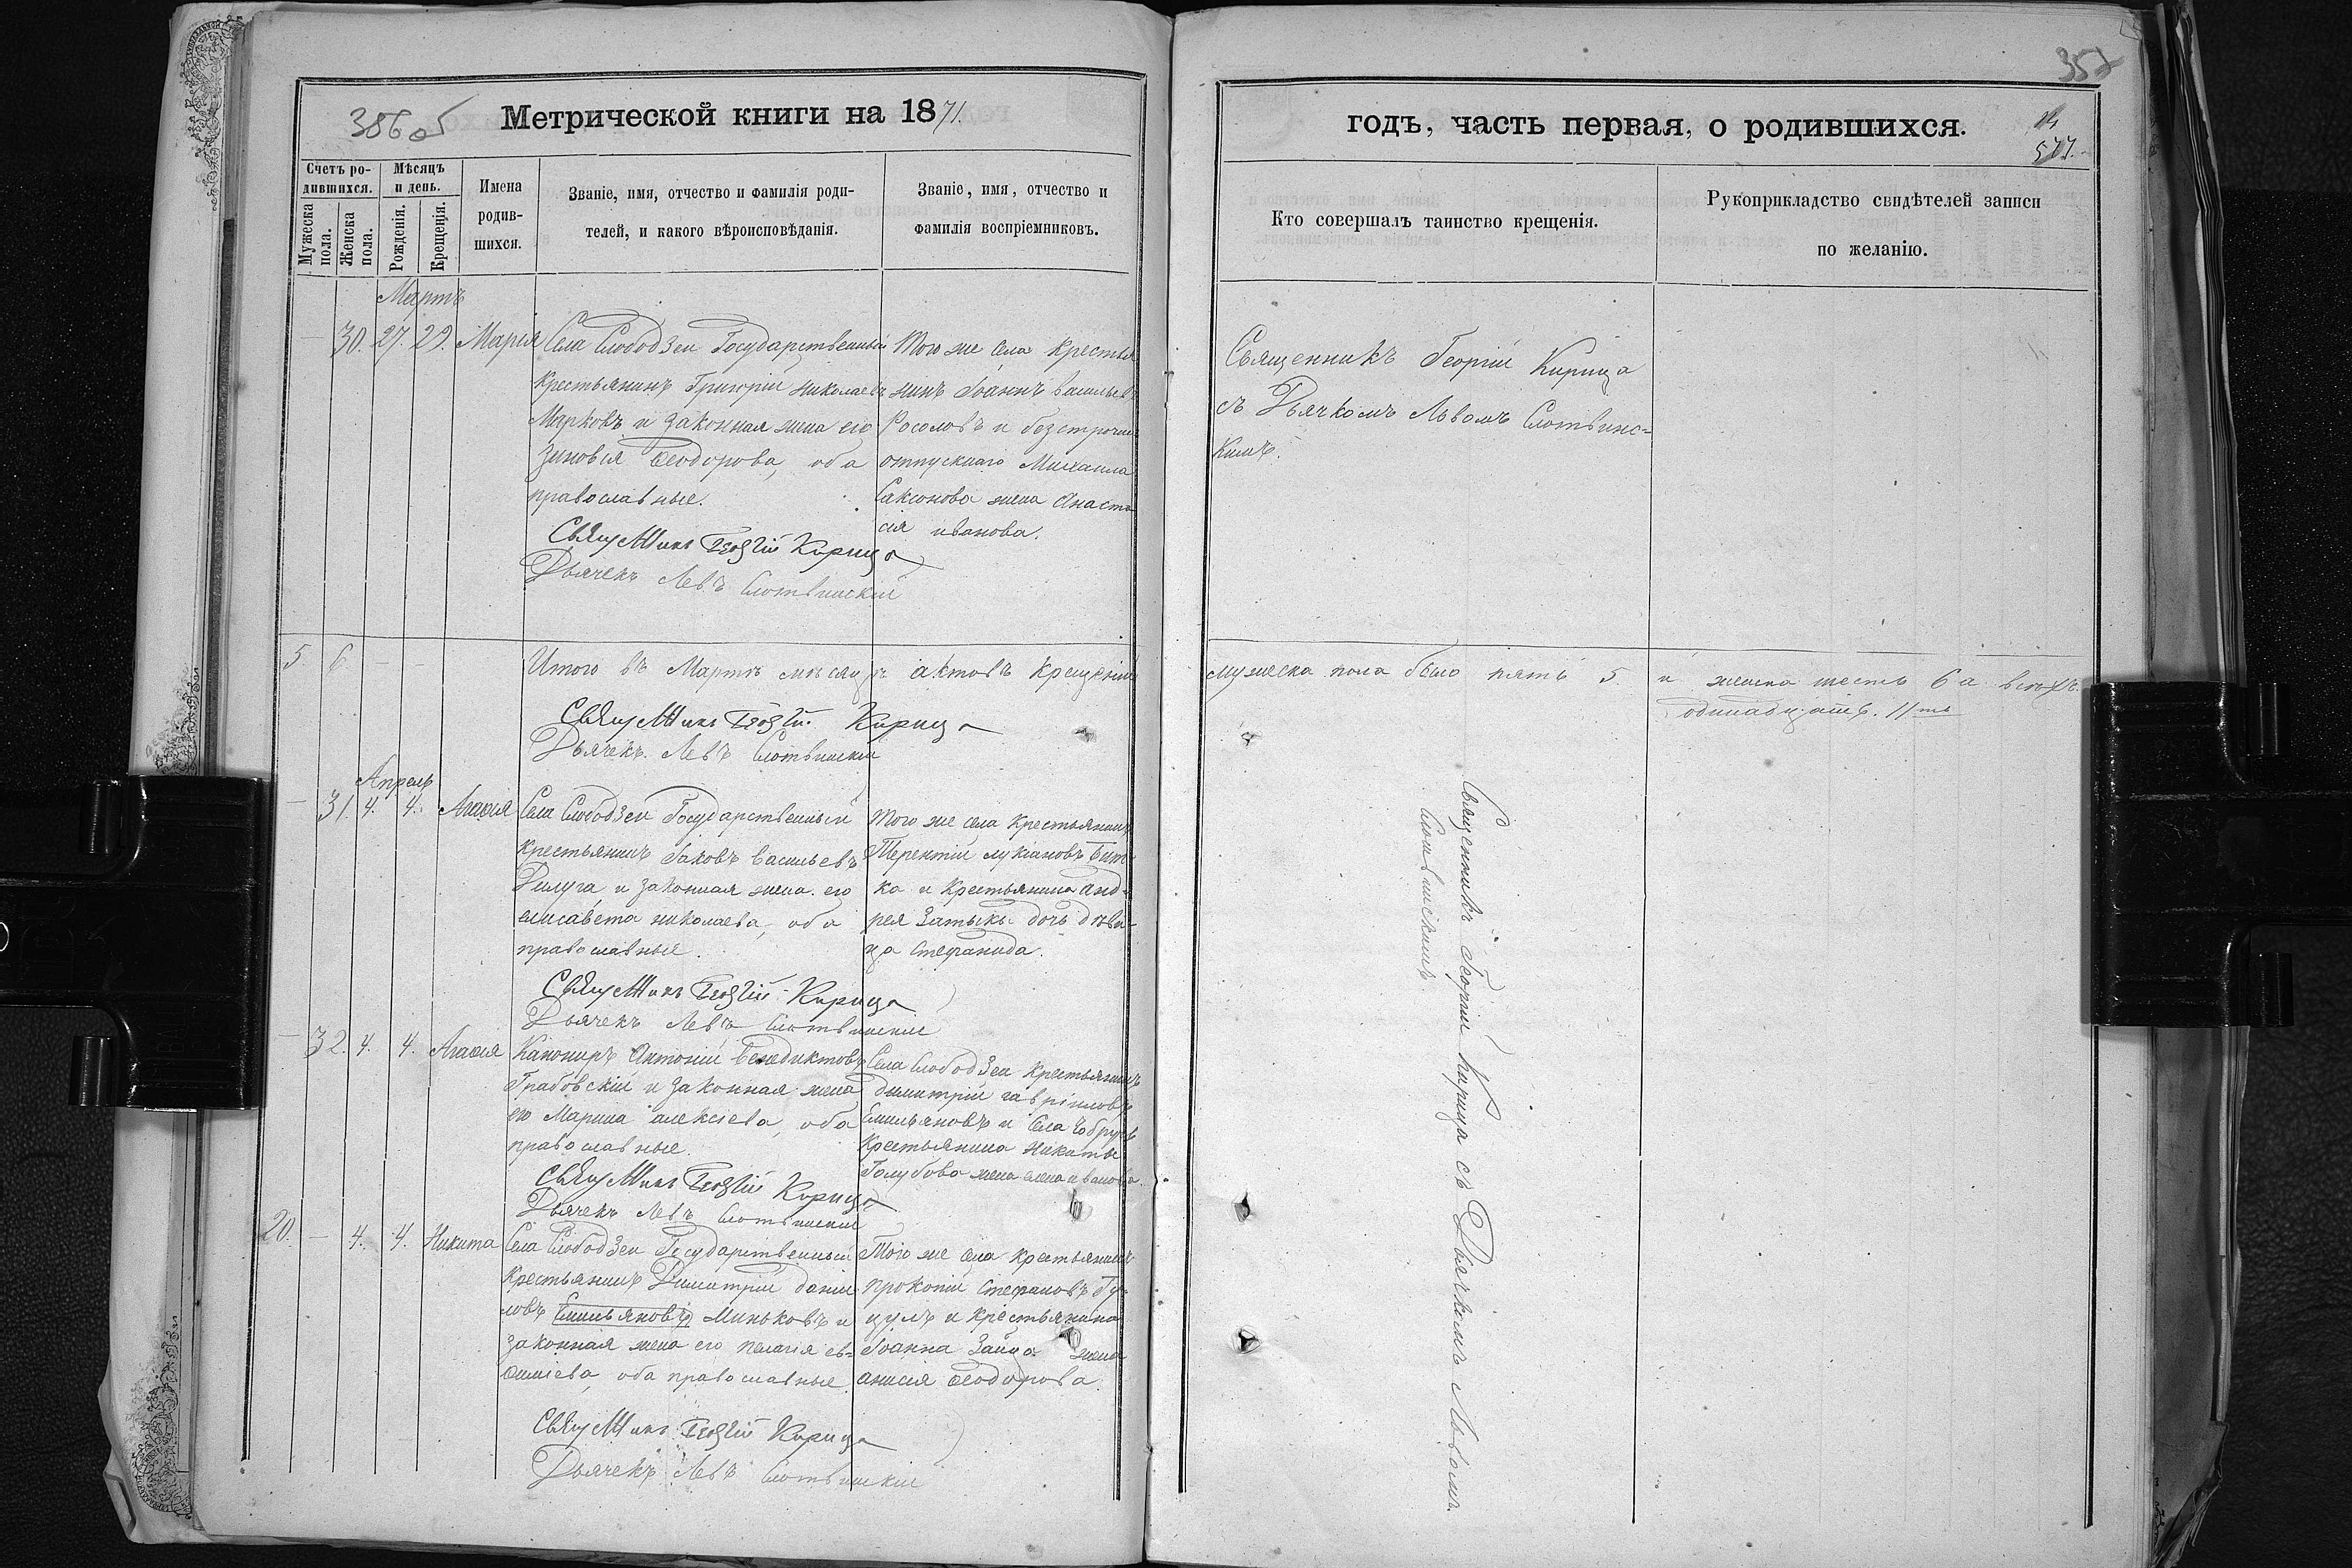 386 об
Метрической книги на 1871.
Счетъ ро-
дившихся.
Мѣсяцъ
и день.
Мужеска
пола.
Женска
пола.
Рожденія.
Крещенія.
Имена
родив-
шихся.
Званіе, имя, отчество и фамилія роди-
телей, и какого вѣроисповѣданія.
Званіе, имя, отчество и
фамилія воспріемниковъ.
Мартъ
— 30. 27. 29. Марія
Села Слободзеи Государственный
крестьянинъ Григорій Николаевъ
Марковъ и законная жена его
Зиновія Ѳеодорова, оба
православные.
Того же села крестья
нинъ Іоаннъ Васильевъ
Росоловъ и безсрочно
отпускнаго Михаила
Саксонова жена Анаста
сія иванова.
Священникъ Георгій Кирица
Дьячекъ Левъ Слотвинскій
5. 6. — —
Итого въ Мартѣ мѣсяцѣ актовъ крещенія
Священникъ Георгій Кирица
Дьячекъ Левъ Слотвинскій
Апрель
— 31. 4. 4. Агафія
Села Слободзеи Государственный
крестьянинъ Іаковъ Васильевъ
и законная жена его
елисавета николаева, оба
православные.
Того же села крестьянинъ
Терентій лукіановъ Бит-
ка и крестьянина Анд-
рея Затыки дочь дѣви-
ца Стефанида.
Священникъ Георгій Кирица
Дьячекъ Левъ Слотвинскій
— 32. 4. 4. Агафія
Канониръ Антоній Бенедиктовъ
Грабовскій и законная жена
его Марина алексіева, оба
православные.
Села Слободзеи крестьянинъ
Димитрій гавріиловъ
Емильяновъ и Села Чобручъ
крестьянина Никиты
Голубова жена елена иванова.
Священникъ Георгій Кирица
Дьячекъ Левъ Слотвинскій
20. — 4. 4. Никита
Села Слободзеи Государственный
крестьянинъ Димитрій даніи-
ловъ Емильяновъ Миньковъ и
законная жена его пелагія ев-
ѳиміева, оба православные.
Того же села крестьянинъ
прокопій Стефановъ Гу-
цулъ и крестьянина
Іоанна Зайца жена
анисія Ѳеодорова.
Священникъ Георгій Кирица
Дьячекъ Левъ Слотвинскій
годъ, часть первая, о родившихся.
577.
Кто совершалъ таинство крещенія.
Рукоприкладство свидѣтелей записи
по желанію.
Священникъ Георгій Кирица
съ Дьячкомъ Львомъ Слотвинс-
кимъ.
мужеска пола было пять 5. и женска шесть 6 а всѣхъ
одинадцать. 11ть
Священникъ Георгій Кирица съ Дьячкомъ Львомъ
Слотвинскимъ